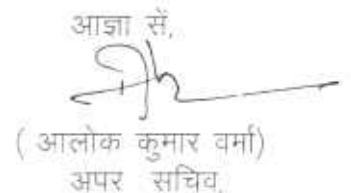 आज्ञा सें,
( आलोक कुमार वर्मा)
अपर सचिव,